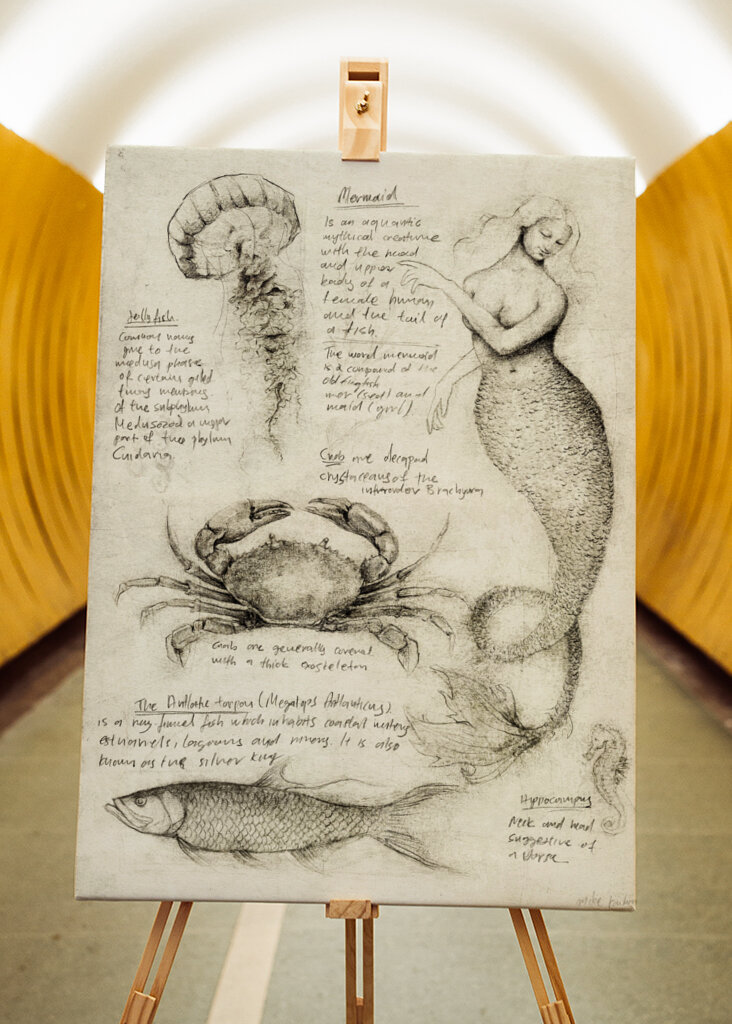 Mermaid
Is an aquantic
mythical creature
with the head
and upper
body of a
female human
and the tail of
a fish.
The word mermaid
is a compound of the
old English
mer (sea) and
maid (girl)
Jellyfish.
Common name
give to the
medusa phases
of certain
of the subphylum
Medusozoa a major
part of the phylum
Cnidaria
Crab are decapod
crystaceans of the
infraorder Brachyura
Crab are generally covered
with a thick exosteleton
The Atlantic tarpon (Megalops Atlanticus)
is a ray finned fish which inhabits coastal waters
estuaries, lagouns and rivers. It is also
known as the silver king
Hippocampus
Neck and head
suggestive of
a horse